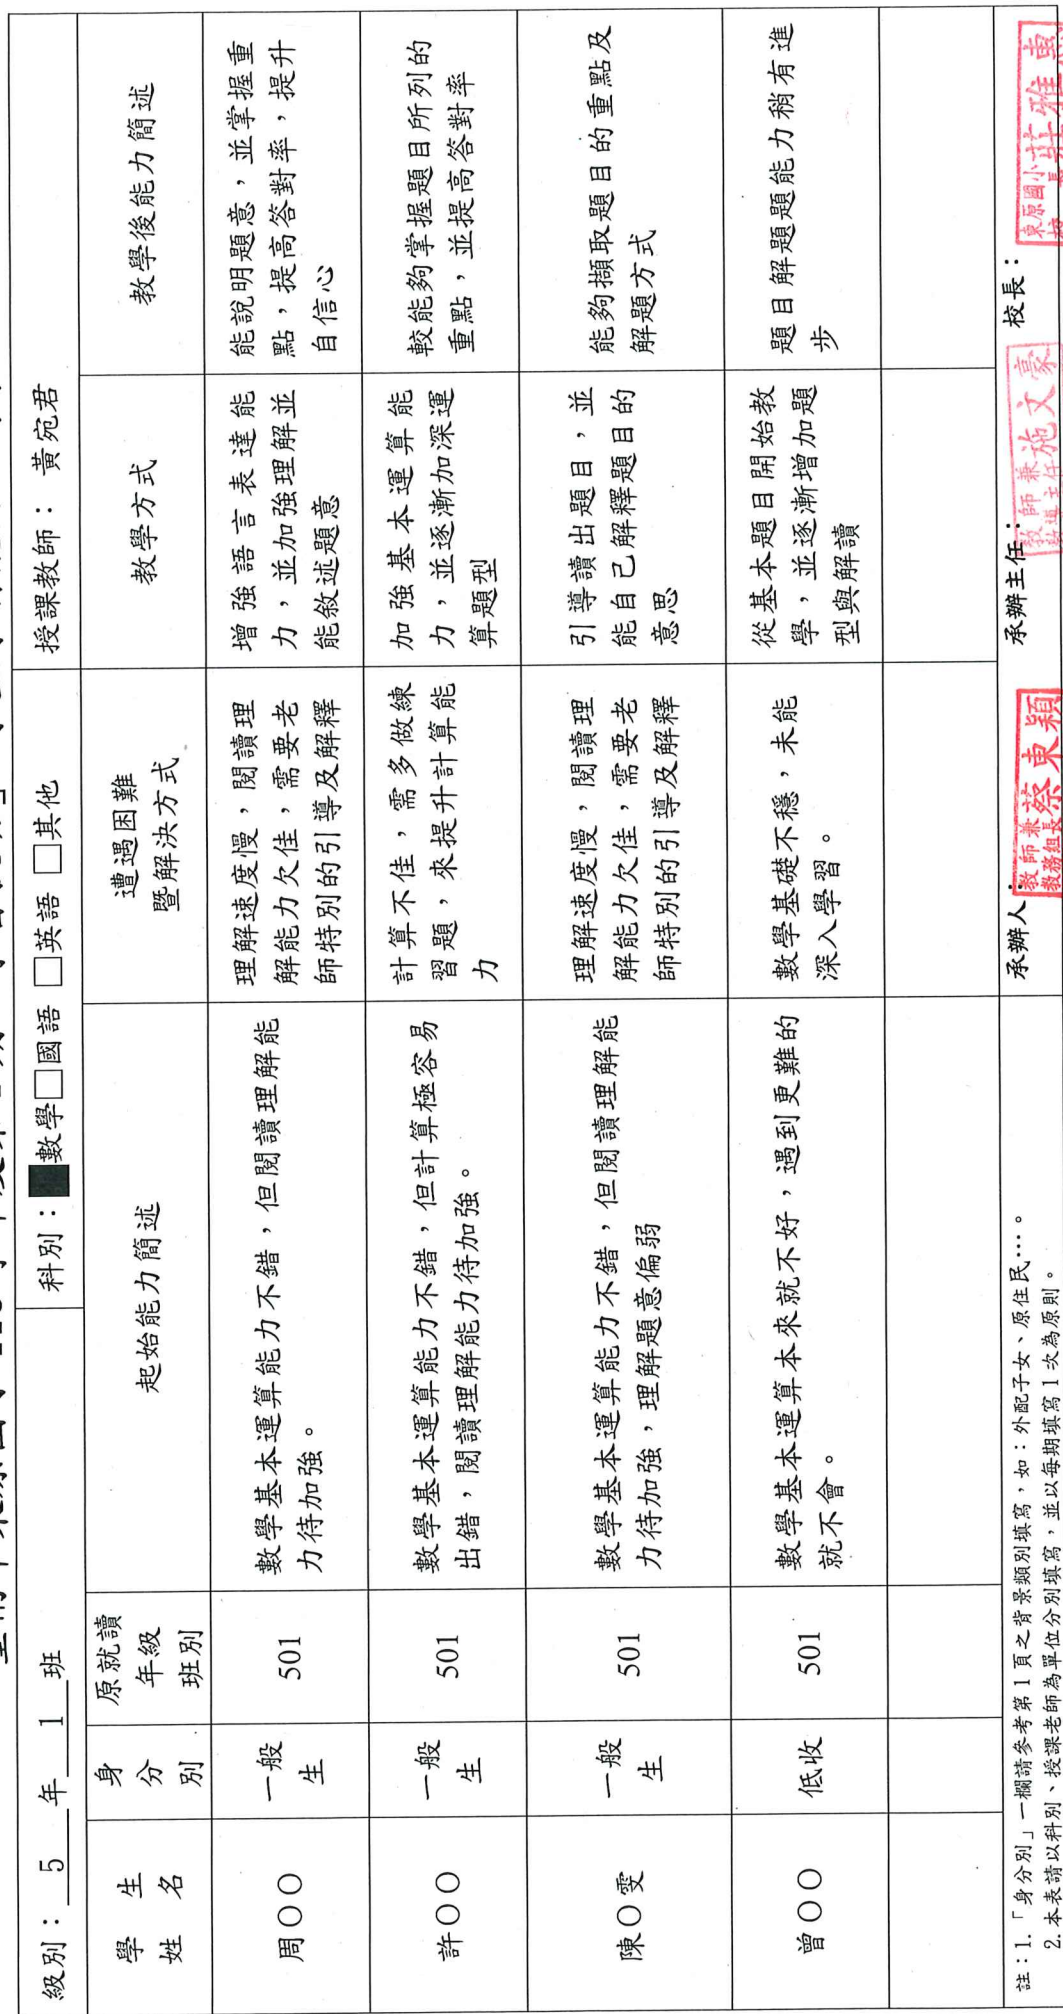 級別：5年1班
科別：■數學□國語 □英語 □其他
授課教師：黃宛君
學生
姓名
身分別
原就讀
年級
班別
起始能力簡述
遭遇困難
暨解決方式
教學方式
教學後能力簡述
周〇〇
一般
生
501
數學基本運算能力不錯，但閱讀理解能
力待加強。
理解速度慢，閱讀理
解能力欠佳，需要老
師特別的引導及解釋
增強語言表達能
力，並加強理解並
能敘述題意
能說明題意，並掌握重
點，提高答對率，提升
自信心
許〇〇
一般
生
501
數學基本運算能力不錯，但計算極容易
出錯，閱讀理解能力待加強。
計算不佳，需多做練
習題，來提升計算能
力
加強基本運算能
力，並逐漸加深運
算題型
較能夠掌握題目所列的
重點，並提高答對率
陳〇雯
一般
生
501
數學基本運算能力不錯，但閱讀理解能
力待加強，理解題意偏弱
理解速度慢，閱讀理
解能力欠佳，需要老
師特別的引導及解釋
引導讀出題目，並
能自己解釋題目的
意思
能夠擷取題目的重點及
解題方式
曾〇〇
低收
501
數學基本運算本來就不好，遇到更難的
就不會。
數學基礎不穩，未能
深入學習。
從基本題目開始教
學，並逐漸增加題
型與解讀
題目解題題能力稍有進
步
註：1.「身分別」一欄請參考第1頁之背景類別填寫，如：外配子女、原住民…。
2.本表請以科別、授課老師為單位分別填寫，並以每期填寫1次為原則。
承辦人：
教師兼
教務組長 蔡東穎
承辦主任：
教師兼
教導主任 施文豪
校長：
東原國小
校長 莊雅